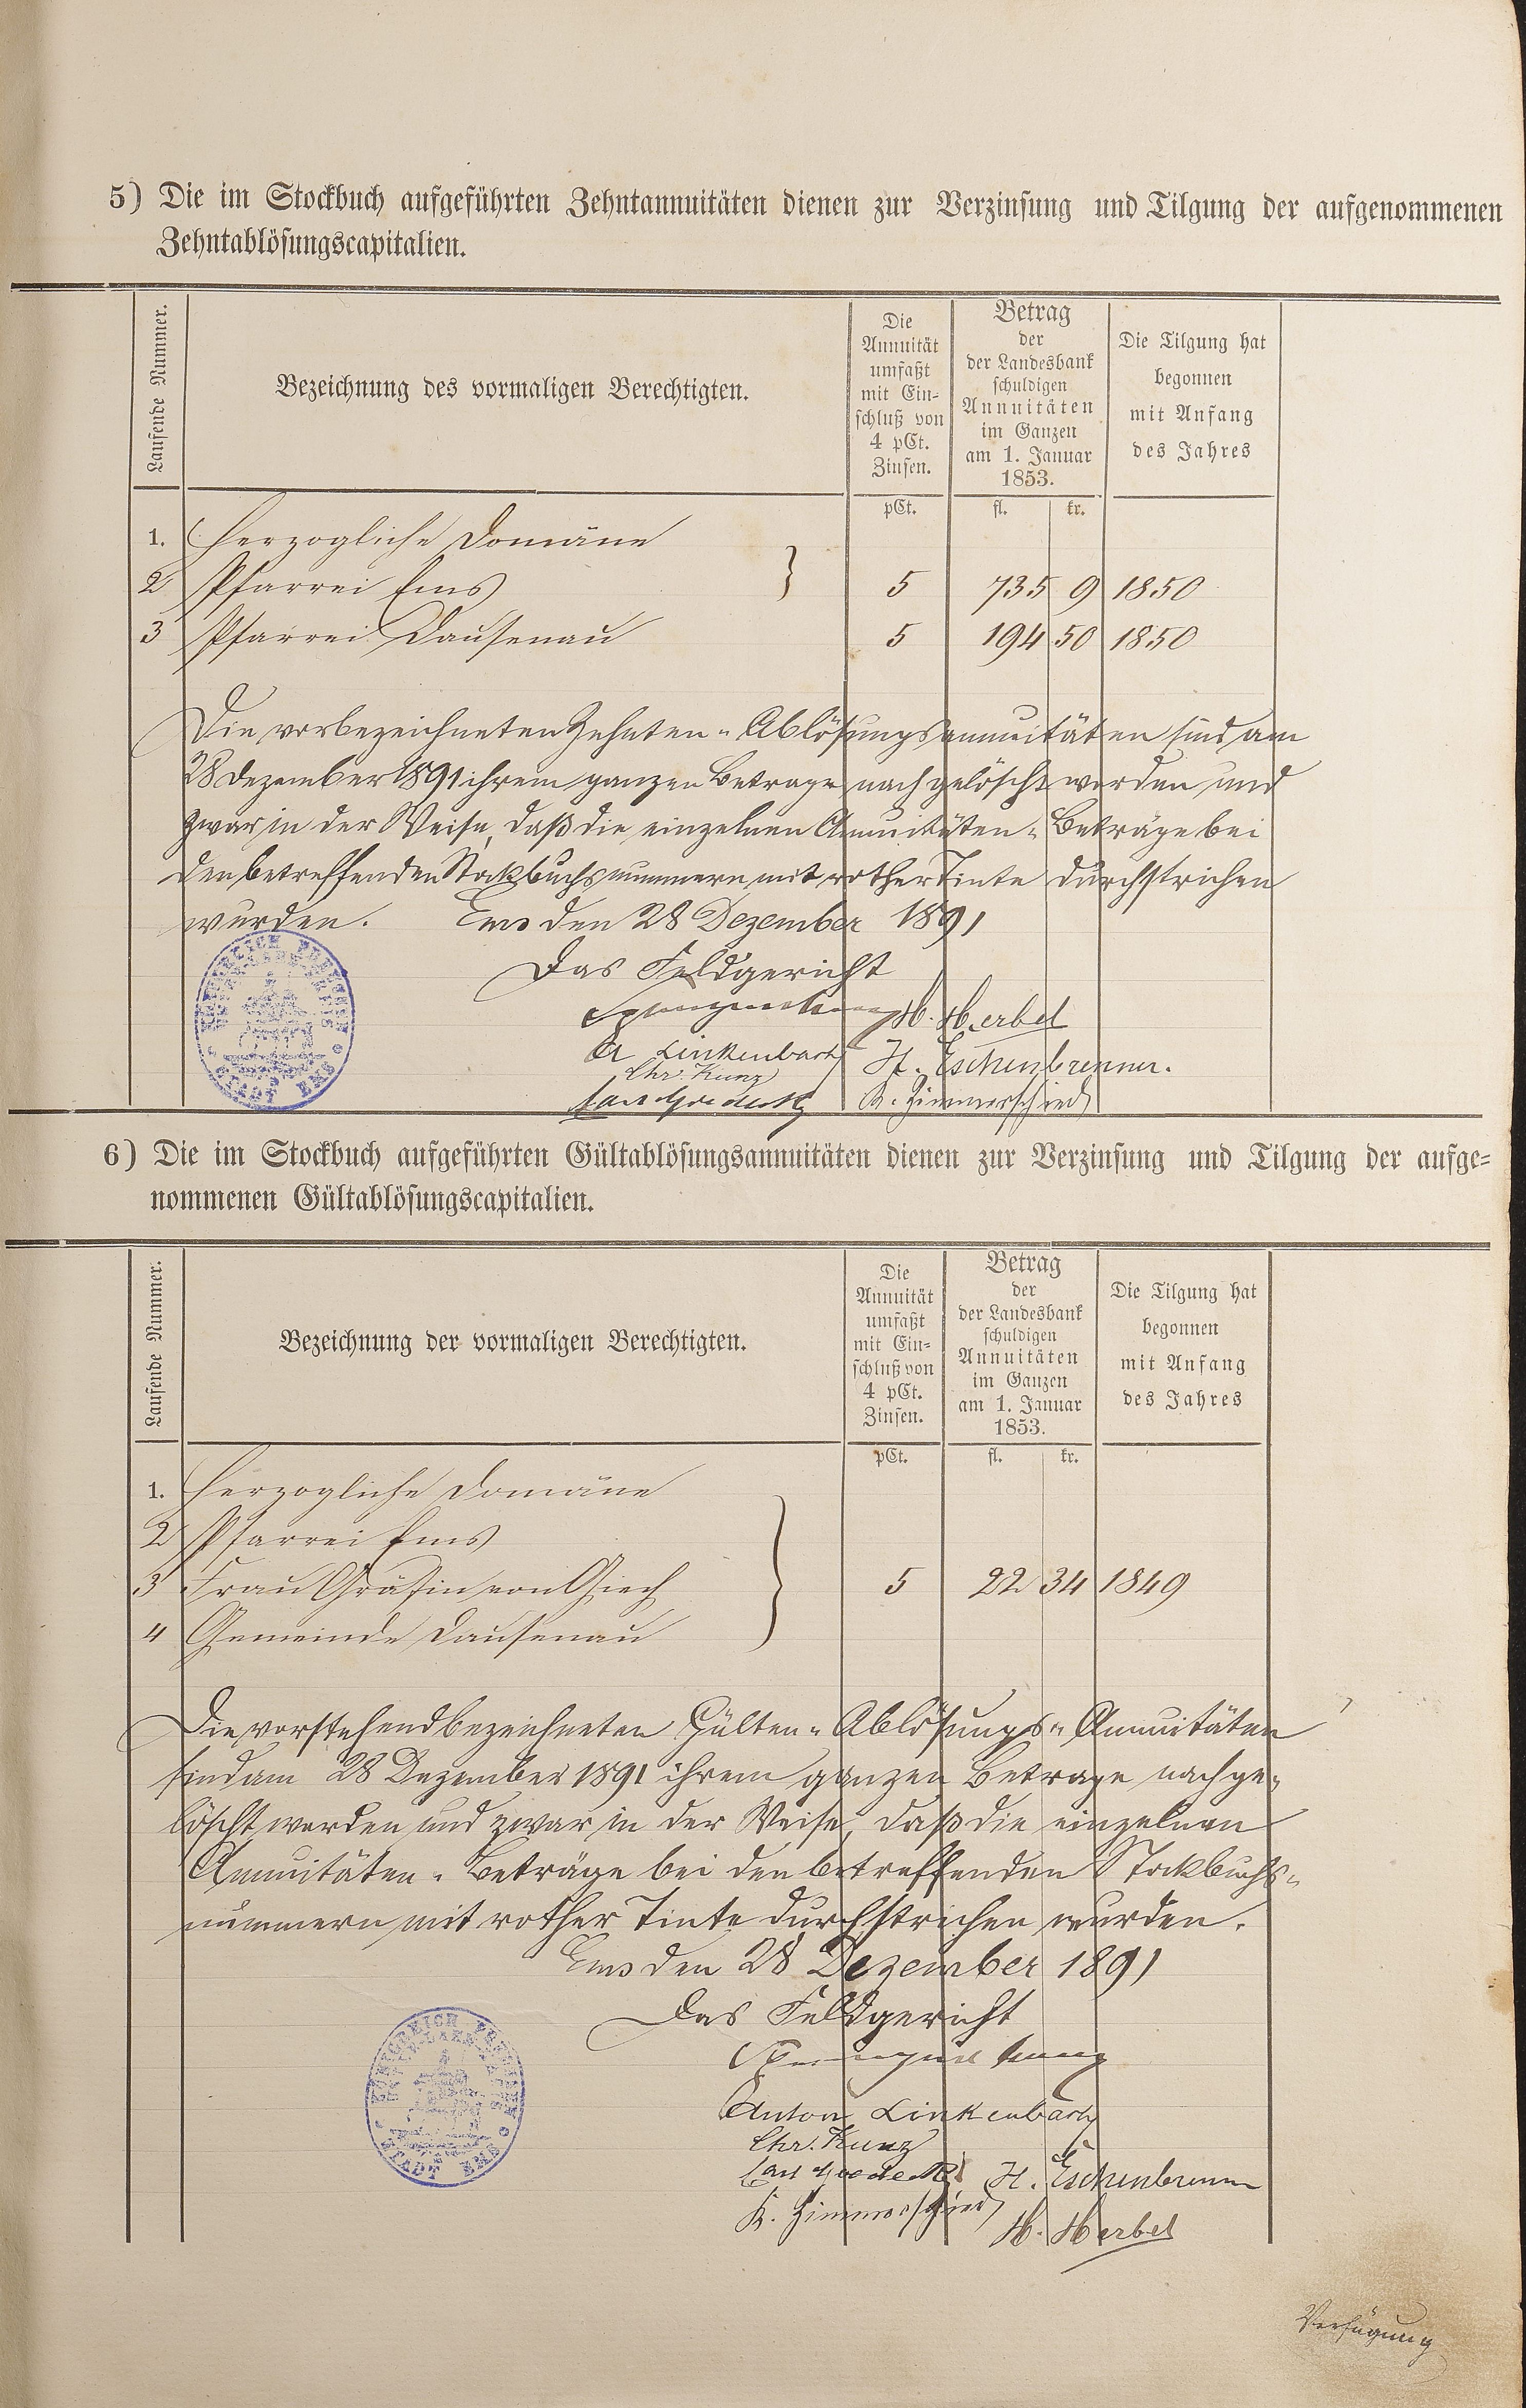 5) Die im Stockbuch aufgeführten Zehntannuitäten dienen zur Verzinsung und Tilgung der aufgenommenen
Zehntablösungscapitalien.
Laufende Nummer.
Bezeichnung des vormaligen Berechtigten.
Die
Annuität
umfaßt
mit Ein-
schluß von
4 pCt.
Zinsen.
Betrag
der
der Landesbank
schuldigen
Annuitäten
im Ganzen
am 1. Januar
1853.
Die Tilgung hat
begonnen
mit Anfang
des Jahres
pCt. fl. kr.
1. Herzogliche Domäne
2 Pfarrei Ems } 5 735 9 1850
3 Pfarrei Dausenau 5 194 50 1850
Die vorbezeichneten Zehnten-Ablösungsannuitäten sind am
28 Dezember 1891 ihrem ganzen Betrage nach gelöscht worden und
zwar in der Weise, daß die einzelnen Annuitäten-Beträge bei
den betreffenden Stockbuchsnummern mit rother Tinte durchstrichen
wurden. Ems den 28 Dezember 1891
Das Feldgericht
H. Herbel
A Linkenbach H. Eschenbrenner.
Chr. Kunz
K. Zimmerschied
STADT EMS
6) Die im Stockbuch aufgeführten Gültablösungsannuitäten dienen zur Verzinsung und Tilgung der aufge-
nommenen Gültablösungscapitalien.
Laufende Nummer.
Bezeichnung der vormaligen Berechtigten.
Die
Annuität
umfaßt
mit Ein-
schluß von
4 pCt.
Zinsen.
Betrag
der
der Landesbank
schuldigen
Annuitäten
im Ganzen
am 1. Januar
1853.
Die Tilgung hat
begonnen
mit Anfang
des Jahres
pCt. fl. kr.
1. Herzogliche Domäne
2 Pfarrei Ems
3 Frau Gräfin von Giech } 5 22 34 1849
4 Gemeinde Dausenau
Die vorstehend bezeichneten Gülten-Ablösungs-Annuitäten
sind am 28 Dezember 1891 ihrem ganzen Betrage nach ge-
löscht worden und zwar in der Weise, daß die einzelnen
Annuitäten-Beträge bei den betreffenden Stockbuchs-
nummern mit rother Tinte durchstrichen wurden.
Ems den 28 Dezember 1891
Das Feldgericht
Anton Linkenbach
Chr. Kunz
H. Eschenbrenner
K. Zimmerschied
H. Herbel
STADT EMS
Verfügung